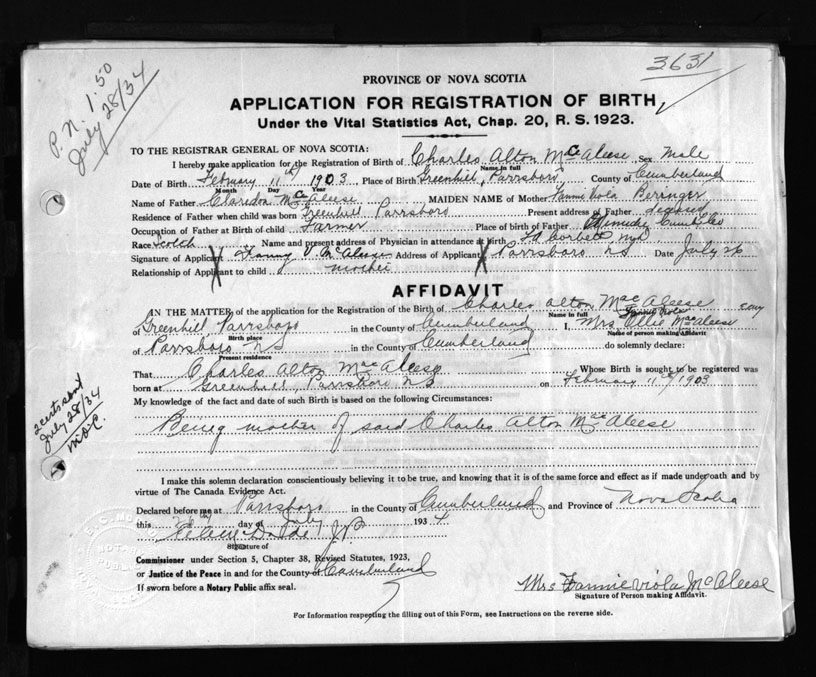 3631
P. N. 1.50
July 28/34
PROVINCE OF NOVA SCOTIA
APPLICATION FOR REGISTRATION OF BIRTH
Under the Vital Statistics Act, Chap. 20, R. S. 1923.
TO THE REGISTRAR GENERAL OF NOVA SCOTIA:
I hereby make application for the Registration of Birth of Charles Alton McAleese Sex Male
Name in full
Date of Birth February 11th 1903 Place of Birth Greenhill, Parrsboro County of Cumberland
Month Day Year
Name of Father Claredon McAleese MAIDEN NAME of Mother Fannie Viola Perringer
Residence of Father when child was born Greenhill Parrsboro Present address of Father
Occupation of Father at Birth of child Farmer Place of birth of Father
Race Scotch Name and present address of Physician in attendance at birth Corbett
Signature of Applicant Fanny V. McAleese Address of Applicant Parrsboro NS Date July 26
Relationship of Applicant to child mother
AFFIDAVIT
IN THE MATTER of application for the Registration of the Birth of Charles Alton MacAleese
Name in full Fannie Viola
of Greenhill Parrsboro in the County of Cumberland I, Mrs MacAleese
Birth place Name of person making Affidavit
of Parrsboro NS in the County of Cumberland do solemnly declare:
Present residence
That Charles Alton MacAleese Whose Birth is sought to be registered was
born at Greenhill, Parrsboro NS on February 11th/1903
My knowledge of the fact and date of such Birth is based on the following Circumstances:
2 certs sent
July 28/34
Being mother of said Charles Alton MacAleese
I make this solemn declaration conscientiously believing it to be true, and knowing that it is of the same force and effect as if made under oath and by
virtue of The Canada Evidence Act.
Declared before me at Parrsboro in the County of Cumberland and Province of Nova Scotia
this day of July 1934
J.P.
Signature of
Commissioner under Section 5, Chapter 38, Revised Statutes, 1923,
or Justice of the Peace in and for the County of Cumberland
If sworn before a Notary Public affix seal.
Mrs Fannie Viola McAleese
Signature of Person making Affidavit.
For Information respecting the filling out of this Form, see Instructions on the reverse side.